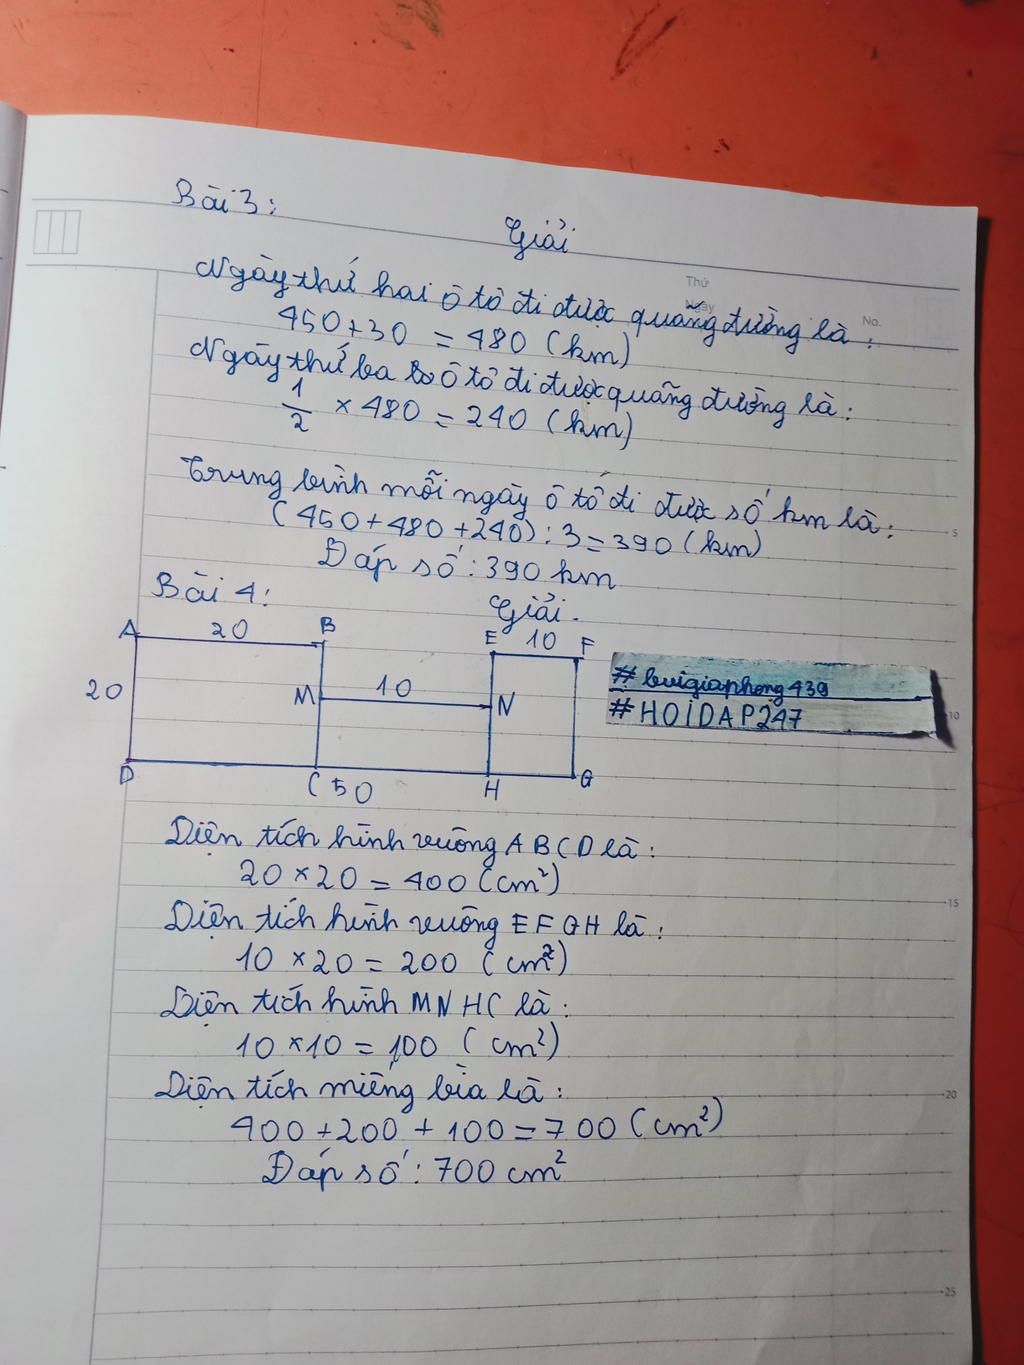 Bài 3:
Giải
Thứ
Ngày
No.
Ngày thứ hai ô tô đi được quãng đường là:
450 + 30 = 480 (km)
Ngày thứ ba ô tô đi được quãng đường là:
1/2 × 480 = 240 (km)
Trung bình mỗi ngày ô tô đi được số km là:
(450 + 480 + 240) : 3 = 390 (km)
Đáp số: 390 km
Bài 4:
Giải.
A 20 B E 10 F
20 M 10 N
D C 50 H G
#buigiaphong439
#HOIDAP247
Diện tích hình vuông ABCD là:
20 × 20 = 400 (cm²)
Diện tích hình vuông EFGH là:
10 × 20 = 200 (cm²)
Diện tích hình MNHC là:
10 × 10 = 100 (cm²)
Diện tích miếng bìa là:
400 + 200 + 100 = 700 (cm²)
Đáp số: 700 cm²
5
10
15
20
25